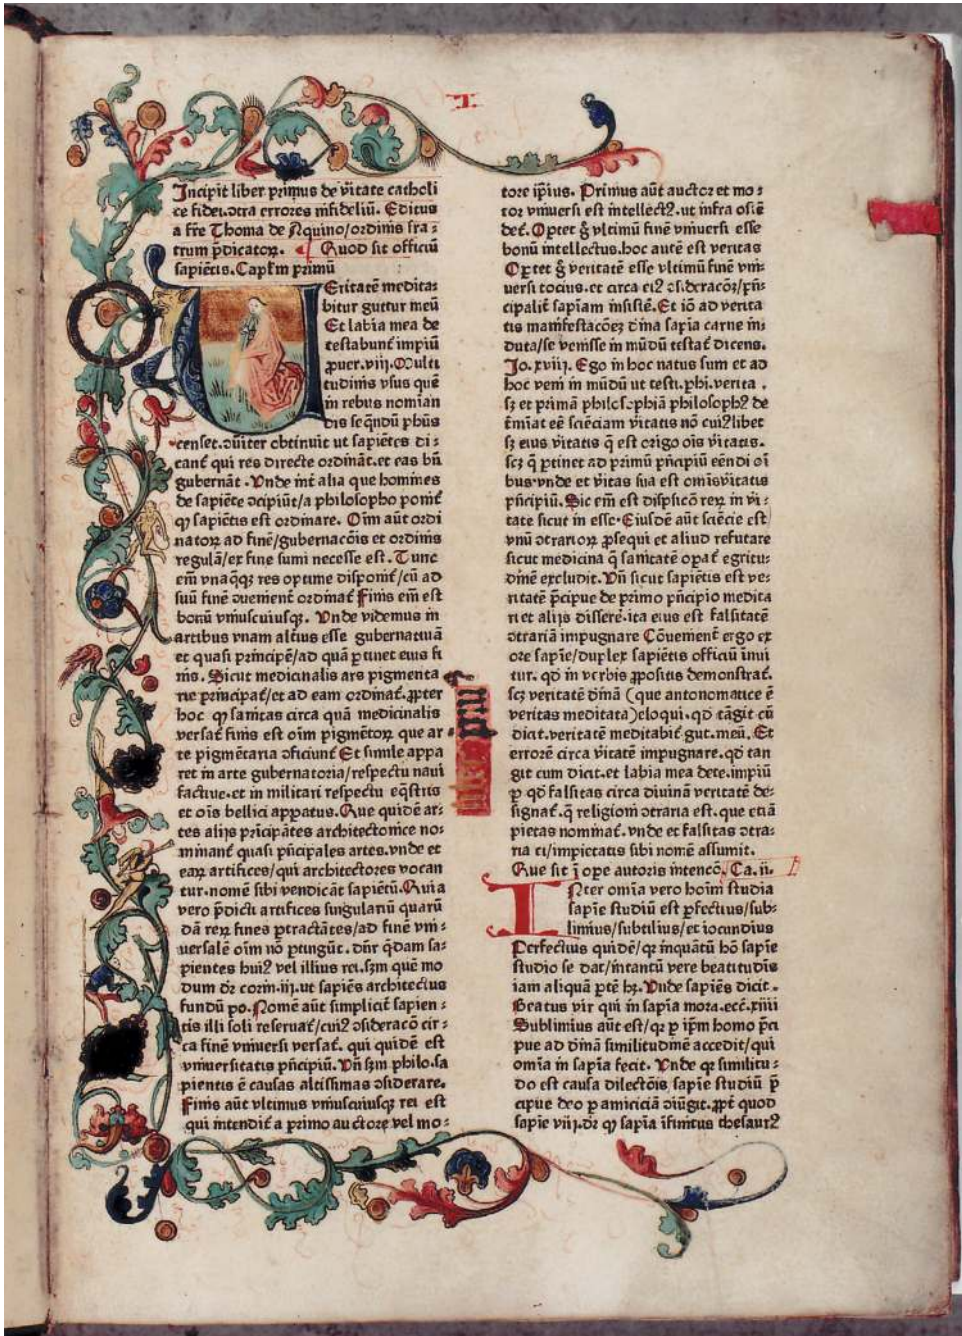 Incipit liber primus de v̄itate catholi
ce fidei.ꝯtra errores infideliū. Editus
a fr̄e Thoma de Aquino/ordinis fra⸗
trum p̄dicatoꝝ. Quod sit officiū
sapiētis. Capl'm primū
VEritatē medita⸗
bitur guttur meū
Et labia mea de
testabunt̄ impiū
ꝓuer.viij. Multi
tudinis vsus quē
in rebus nomian
dis seq̄ndū phūs
censet.ꝯūiter obtinuit ut sapiētes di⸗
cant̄ qui res directe ordināt.et eas bn̄
gubernāt. Vnde int̄ alia que homines
de sapiēte ꝯcipiūt/a philosopho ponit̄
qꝫ sapiētis est ordinare. Oīm aūt ordi
natoꝝ ad finē/gubernacōis et ordinis
regulā/ex fine sumi necesse est. Tunc
em̄ vnaq̄qꝫ res optime disponit̄/cū ad
suū finē ꝯuenient̄ ordinat̄ Finis em̄ est
bonū vniuscuiusqꝫ. Vnde videmus in
artibus vnam altius esse gubernatiuā
et quasi principē/ad quā ꝑtinet eius fi
nis. Sicut medicinalis ars pigmenta
rie principat̄/et ad eam ordinat̄.ꝓpter
hoc qꝫ sanitas circa quā medicinalis
versat̄ finis est oīm pigmētoꝝ que ar⸗
te pigmētaria ꝯficiunt̄ Et simile appa
ret in arte gubernatoria/respectu naui
factiue.et in militari respectu eq̄stris
et oīs bellici apparatus. Que quidē ar⸗
tes alijs prīcipātes architectonice no⸗
minant̄ quasi pn̄cipales artes.vnde et
eaꝝ artifices/qui architectores vocan
tur.nomē sibi vendicāt sapiētū. Quia
vero p̄dicti artifices singulariū quarū
dā reꝝ fines ꝑtractātes/ad finē vni⸗
uersalē oīm nō ꝑtingūt. dn̄r q̄dam sa⸗
pientes huiꝰ vel illius rei.sꝫm quē mo
dum dꝛ corin.iij.ut sapiēs architectus
fundū po. Nomē aūt simplicit̄ sapien⸗
tis illi soli reseruat̄/cuiꝰ ꝯsideracō cir⸗
ca finē vniuersi versat̄. qui quidē est
vniuersitatis pn̄cipiū. Vn̄ sꝫm philo.sa
pientis ē causas altissimas ꝯsiderare.
Finis aūt vltimus vniuscuiusqꝫ rei est
qui intendit̄ a primo auctore vel mo⸗
tore ip̄ius. Primus aūt auctor et mo⸗
tor vniuersi est intellectꝰ.ut infra osīē
det̄. Oꝑtet g̊ vltimū finē vniuersi esse
bonū intellectus.hoc autē est veritas
Oꝑtet g̊ veritatē esse vltimū finē vni⸗
uersi tocius.et circa eiꝰ ꝯsideracōꝫ/pn̄⸗
cipalit̄ sapīam insistē. Et iō ad verita
tis manifestacōeꝫ dīna sapīa carne in⸗
duta/se venisse in mūdū testat̄ dicens.
Jo.xviij. Ego in hoc natus sum et ad
hoc veni in mūdū ut testi.phi.verita.
sꝫ et primā philosophiā philosophꝰ de
t̄miat eē sciēciam v̄itatis nō cuiꝰlibet
sꝫ eius v̄itatis q̄ est origo oīs v̄itatis.
scꝫ q̄ ꝑtinet ad primū pn̄cipiū eēndi oī
bus.vnde et v̄itas sua est omīsv̄itatis
pn̄cipiū. Sic em̄ est disposicō reꝝ in v̄i⸗
tate sicut in esse. Eiusdē aūt sciēcie est
vnū ꝯtrarioꝝ ꝓsequi et aliud refutare
sicut medicina q̄ sanitatē opat̄ egritu⸗
dinē excludit. Vn̄ sicut sapiētis est ve⸗
ritatē p̄cipue de primo pn̄cipio medita
ri et alijs differē.ita eius est falsitatē
ꝯtrariā impugnare Cōuenient̄ ergo ex
ore sapīe/duplex sapiētis officiū inui
tur. qd̄ in verbis ꝓpositis demonstrat̄.
scꝫ veritatē dīnā (que antonomatice ē
veritas meditata)eloqui.qd̄ tāgit cū
dicit.veritatē meditabit̄ gut.meū. Et
errorē circa v̄itatē impugnare.qd̄ tan
git cum dicit.et labia mea dete.impiū
ꝑ qd̄ falsitas circa diuinā veritatē de⸗
signat̄.q̄ religioni ꝯtraria est.que etiā
pietas nominat̄.vnde et falsitas ꝯtra⸗
ria ei/impietatis sibi nomē assumit.
Que sit ī oꝑe autoris intencō. Ca.ii.
INter omīa vero hoīm studia
sapīe studiū est ꝑfectius/sub⸗
limius/subtilius/et iocundius
Perfectius quidē/qꝛ inquātū hō sapīe
studio se dat/intantū vere beatitudīs
iam aliquā ꝑtē hꝫ. Vnde sapiēs dicit.
Beatus vir qui in sapīa mora.ecc̄.xiiii
Sublimius aūt est/qꝛ ꝑ ip̄m homo p̄ci
pue ad dīnā similitudinē accedit/qui
omīa in sapīa fecit. Vnde qꝛ similitu⸗
do est causa dilectōis sapīe studiū p̄
cipue deo ꝑ amiciciā ꝯiūgit.ꝓpt̄ quod
sapīe viij.dꝛ qꝫ sapīa īfinitus thesaurꝰ